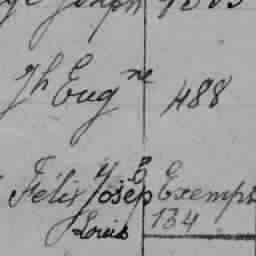 Joseph
Jh Eugne 488
Félix Joseph Exempt
Louis 134